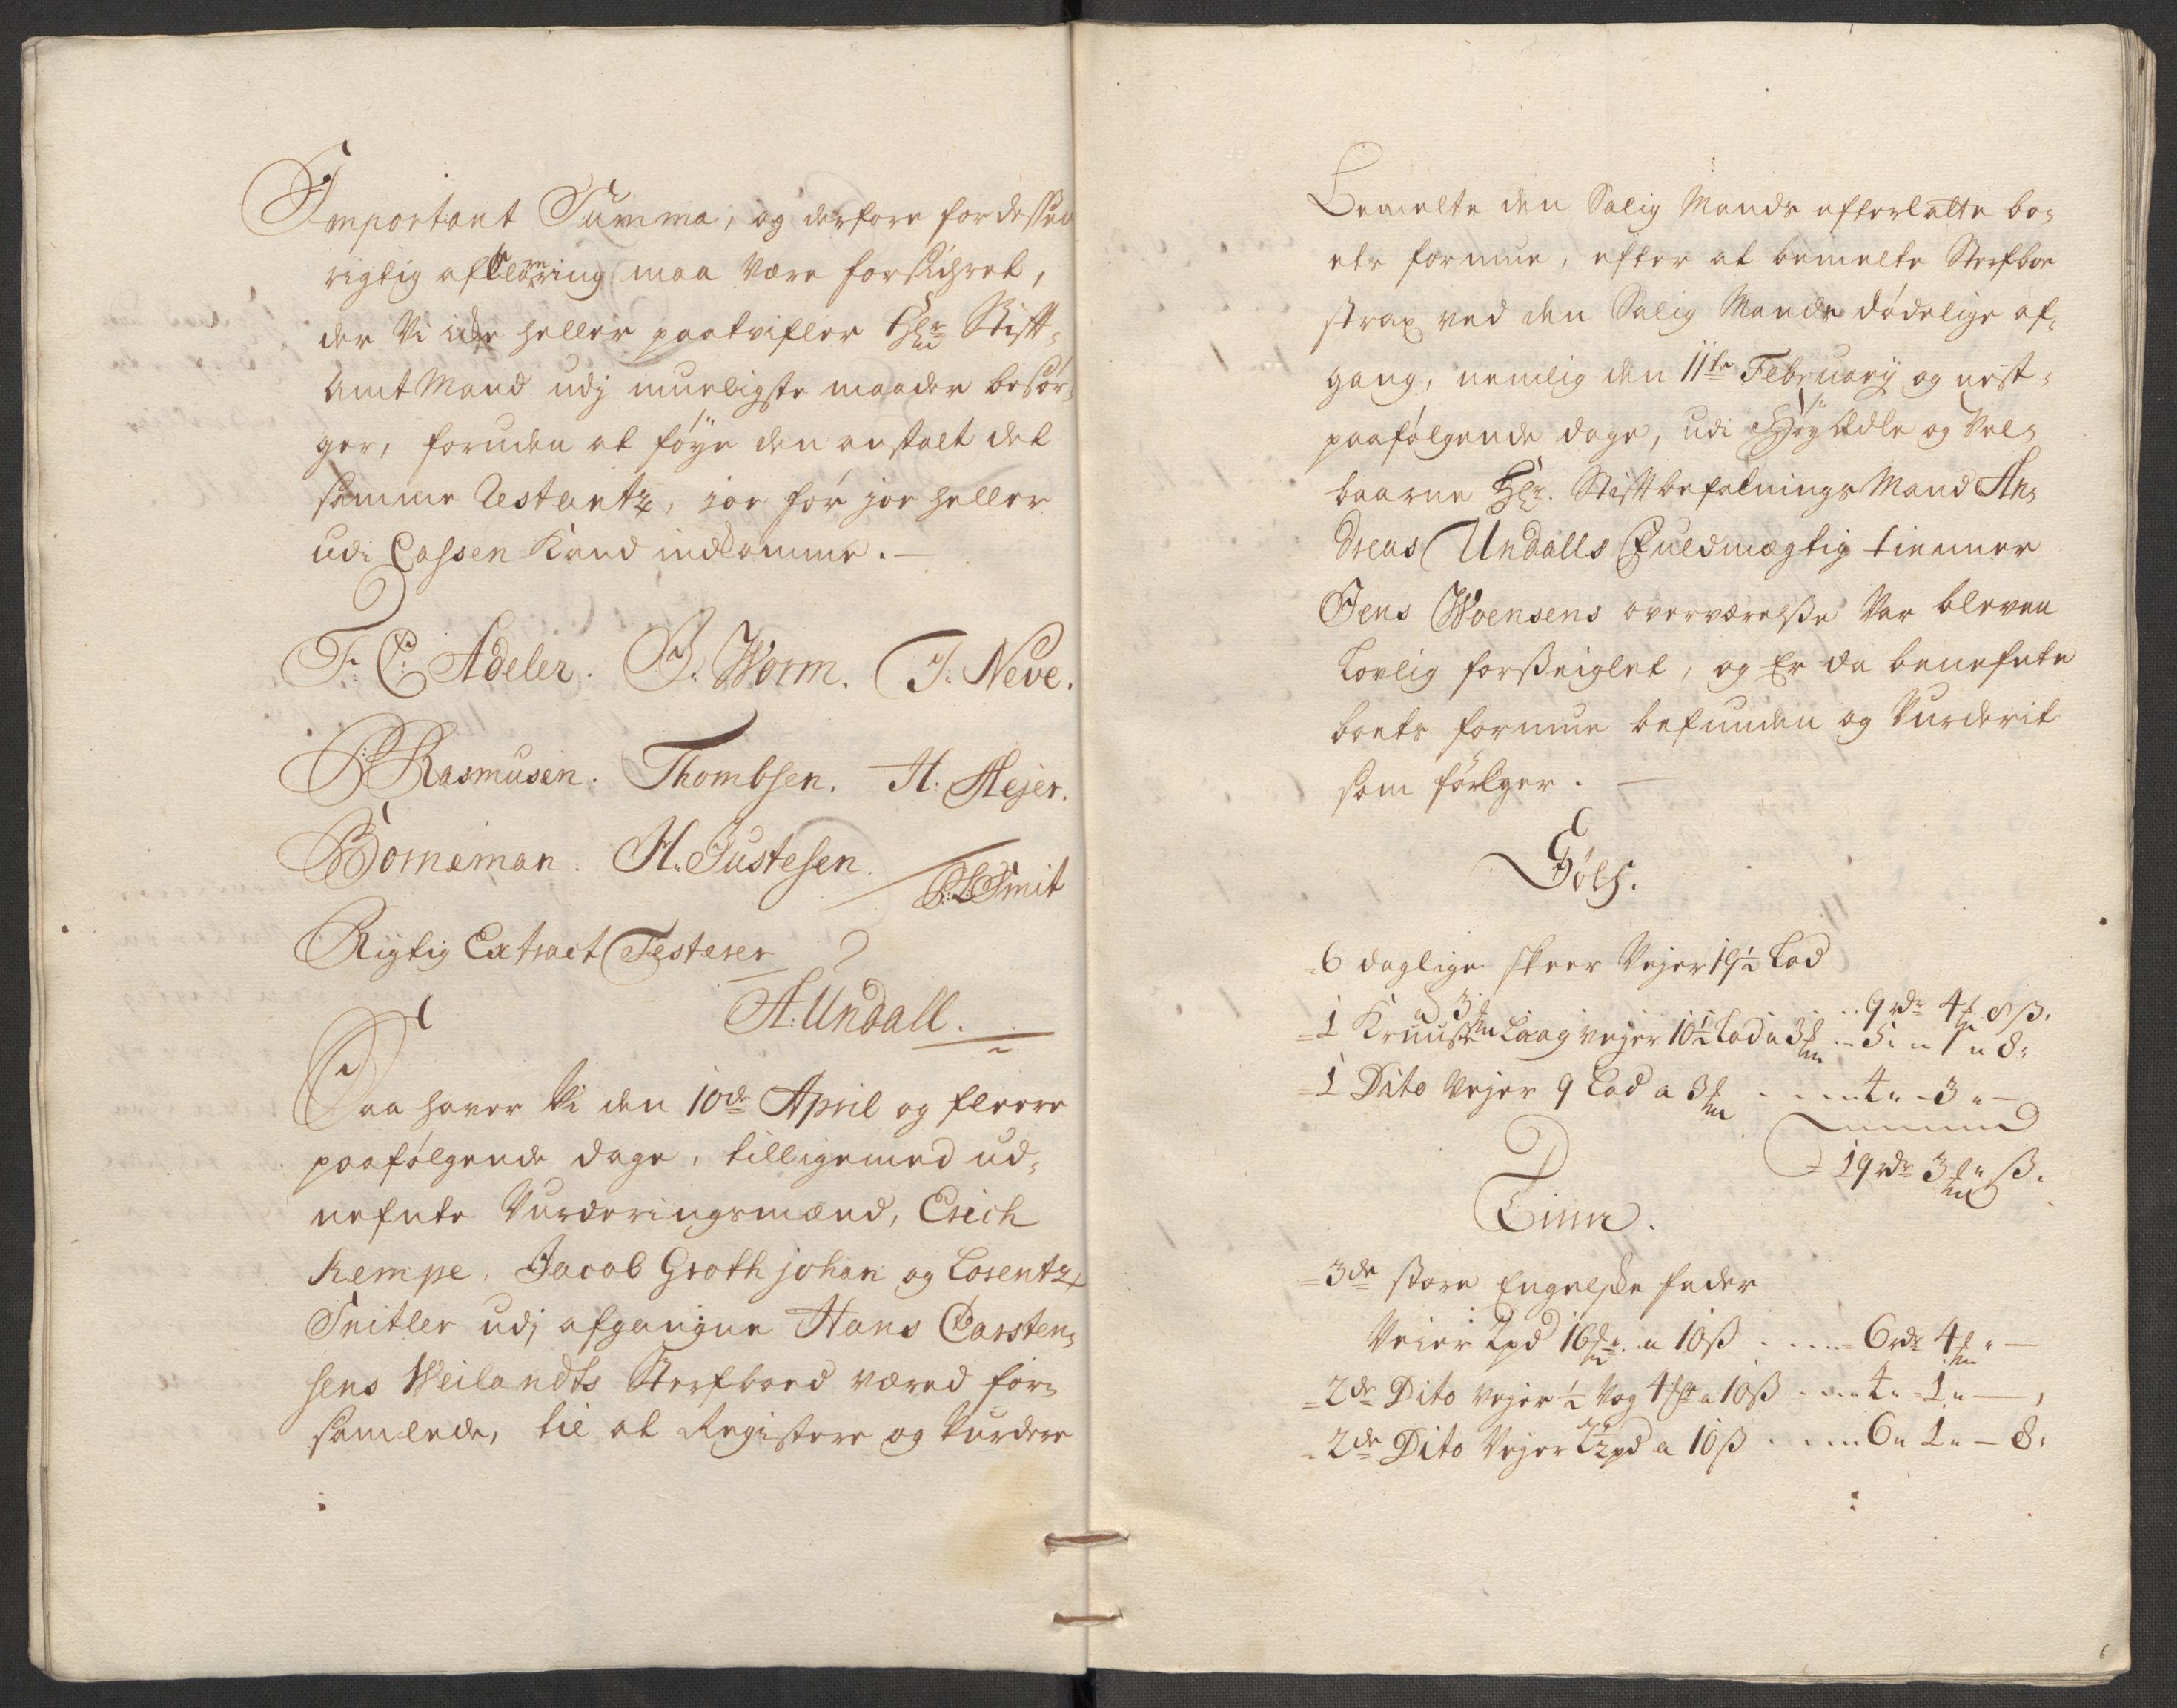 Important Summa, og derfore for dessen
rigtig aflefwering maa være forsichret,
der Vi icke heller paatvifler Hr Stift-
AmtMand udj mueligste maader besør-
ger, foruden at føye den anstalt det
samme Restantz, joe før joe heller
udi Cassen Kand indkomme.
F: C: Adeler. B. Worm. J. Neve.
P Rasmusen. Thombsen. H: Mejer.
Borneman. H. Justesen. P: L: Smit
Rigtig Extract Testerer
A: Undall.
Saa hafver Vi den 10de April og fleere
paafølgende dage, tilligemed ud-
nefnte Vurderingsmænd, Erich
Kempe, Jacob Grothjohan og Lorentz
Snitler udj afgangne Hans Carsten-
sens Weilandts Sterfboed været for-
samlede, til at Registere og Vurdere
Bemelte den Salig Mands efterlatte bo-
ets formue, efter at bemelte Sterfboe
strax ved den Salig Mands dødelige af-
gang, nemlig den 11te February og nest-
paafølgende dage, udi HøyÆdle og Vel-
baarne Hr. Stiftbefalnings Mand An-
dreas Undalls Fuldmægtig tienner
Jens Woensens overværelse Var bleven
Lovlig forseiglet, og Er da benefnte
boets formue befunden og Vurderit
som følger.
Sølf.
6 daglige skeer Vejer 19½ Lod
a 3 ... 9 rdr 4 8 ß.
1 Kruuse Laag vejer 10½ Lod a 3 .. 5 " 1 " 8:
1 Dito Vejer 9 Lod a 3 .... 4 " 3 " —
19 rdr 3 " ß.
Tinn.
3de store Engelske fade
Veier 1 Lpd 16 a 10 ß .... 6 rdr 4 " —
2de Dito vejer ½ Vog a 10 ß ... 4 " 1 " —
2de Dito Vejer a 10 ß .... 6 " 1 " 8: